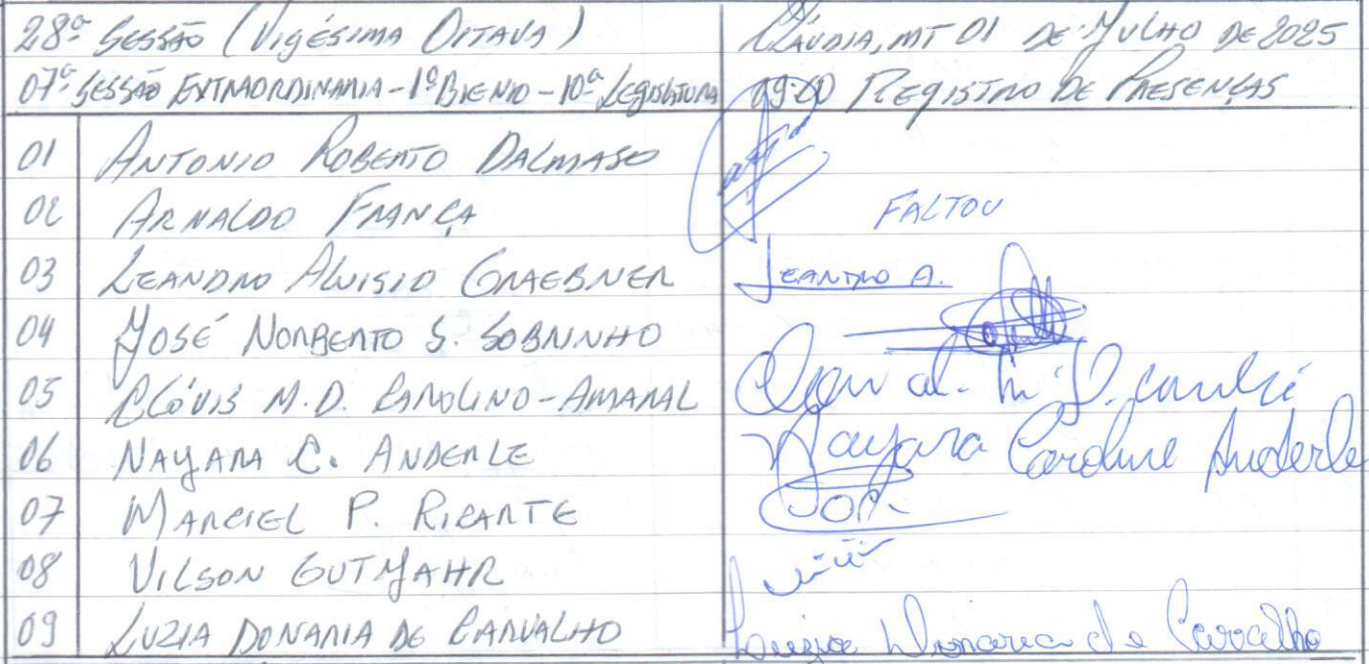 28ª SESSÃO (VIGÉSIMA OITAVA) CLÁUDIA, MT 01 DE JULHO DE 2025
07ª SESSÃO EXTRAORDINARIA - 1º BIENIO - 10ª LEGISLATURA 09:00 REGISTRO DE PRESENÇAS
01 ANTONIO ROBERTO DALMASO
02 ARNALDO FRANÇA FALTOU
03 LEANDRO ALUISIO GRAEBNER LEANDRO A.
04 JOSÉ NORBERTO S. SOBRINHO
05 CLÓVIS M.D. CAROLINO-AMARAL
06 NAYARA C. ANDERLE Nayara Caroline Anderle
07 MARCIEL P. RICARTE
08 VILSON GUTJAHR
09 LUZIA DONARIA DE CARVALHO Luzia Donaria de Carvalho